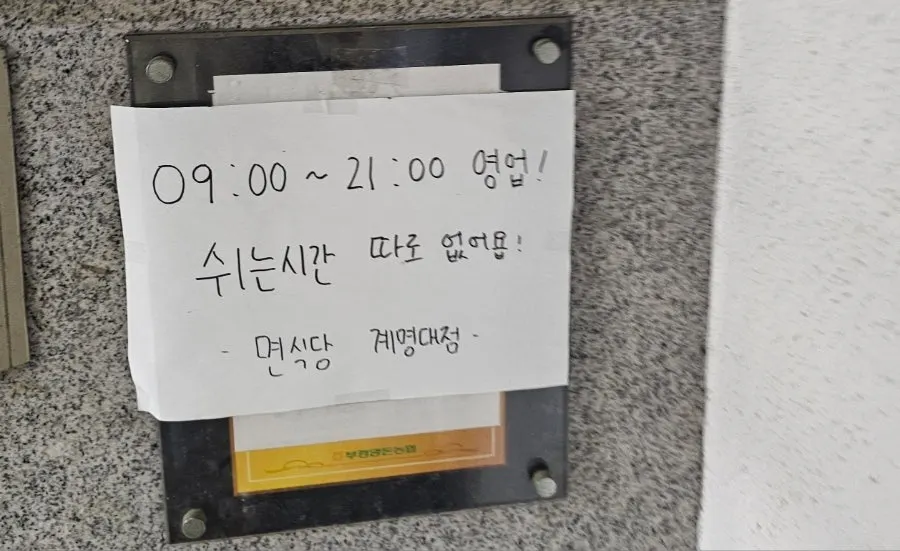 09:00 ~ 21:00 영업!
쉬는시간 따로 없어욥!
- 면식당 계명대점 -